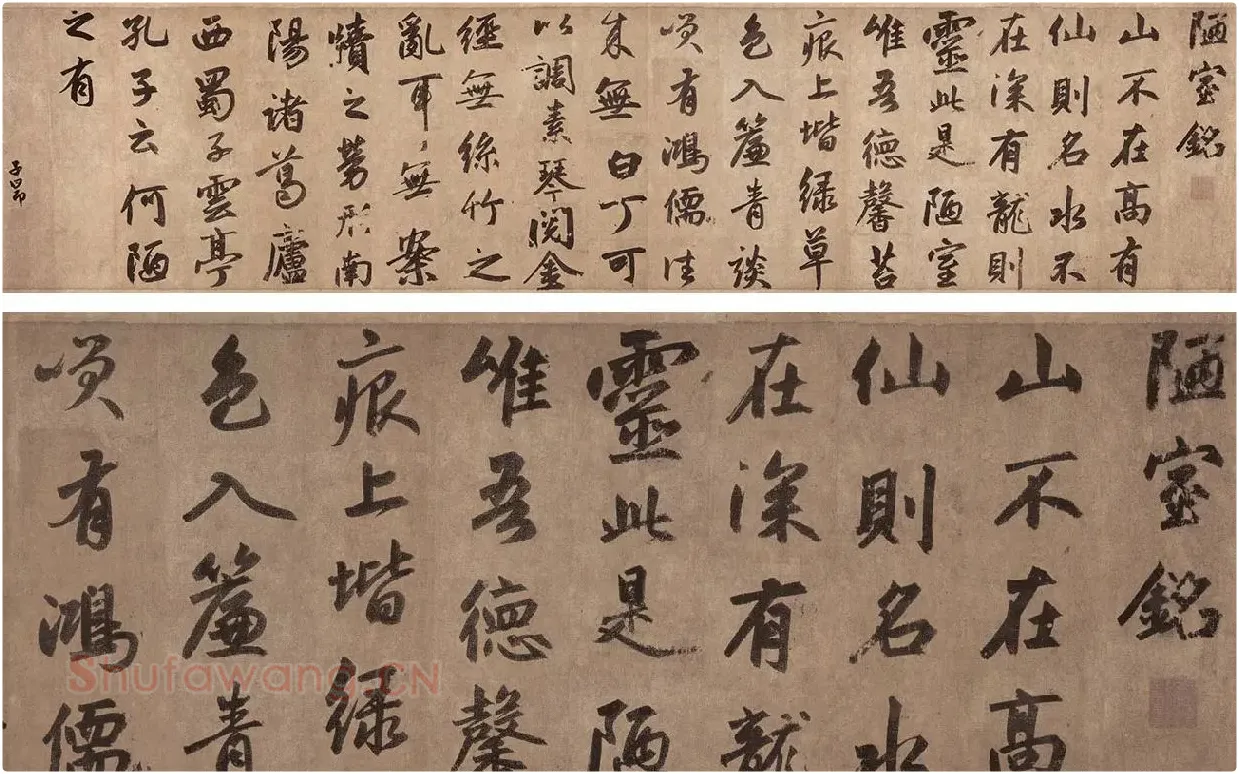 陋室銘
山不在高有
仙則名水不
在深有龍則
靈此是陋室
唯吾德馨苔
痕上堦緑草
色入簾青談
笑有鴻儒往
來無白丁可
以調素琴閱金
經無絲竹之
亂耳無案
牘之勞形南
陽諸葛廬
西蜀子雲亭
孔子云何陋
之有
子昂
陋室銘
山不在高
仙則名水
在深有龍
靈此是陋
唯吾德馨
痕上堦緑
色入簾青
笑有鴻儒
Shufawang.CN